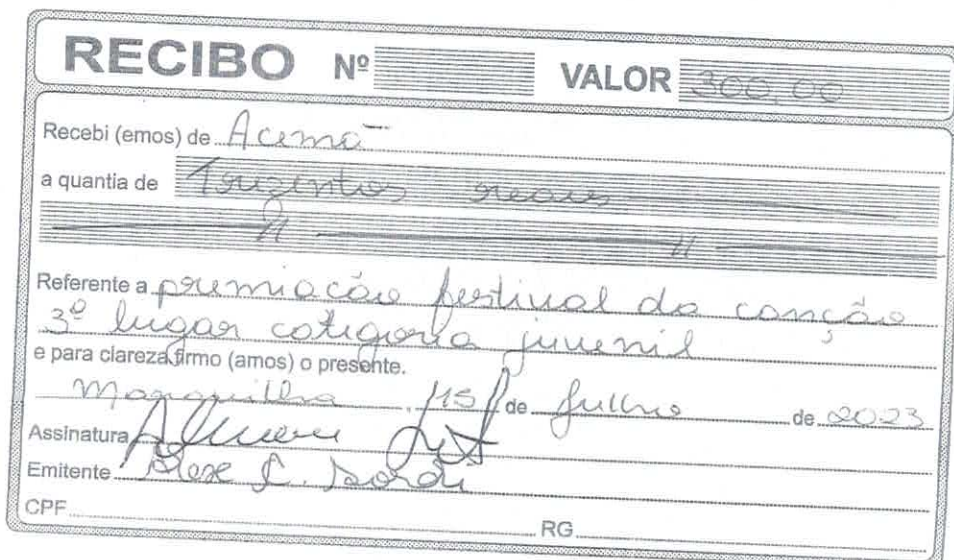 RECIBO Nº VALOR 300,00
Recebi (emos) de Acemã
a quantia de Trezentos reais
Referente a premiação festival da canção
3º lugar categoria juvenil
e para clareza firmo (amos) o presente.
, 15 de julho de 2023
Assinatura
Emitente Alex
CPF RG